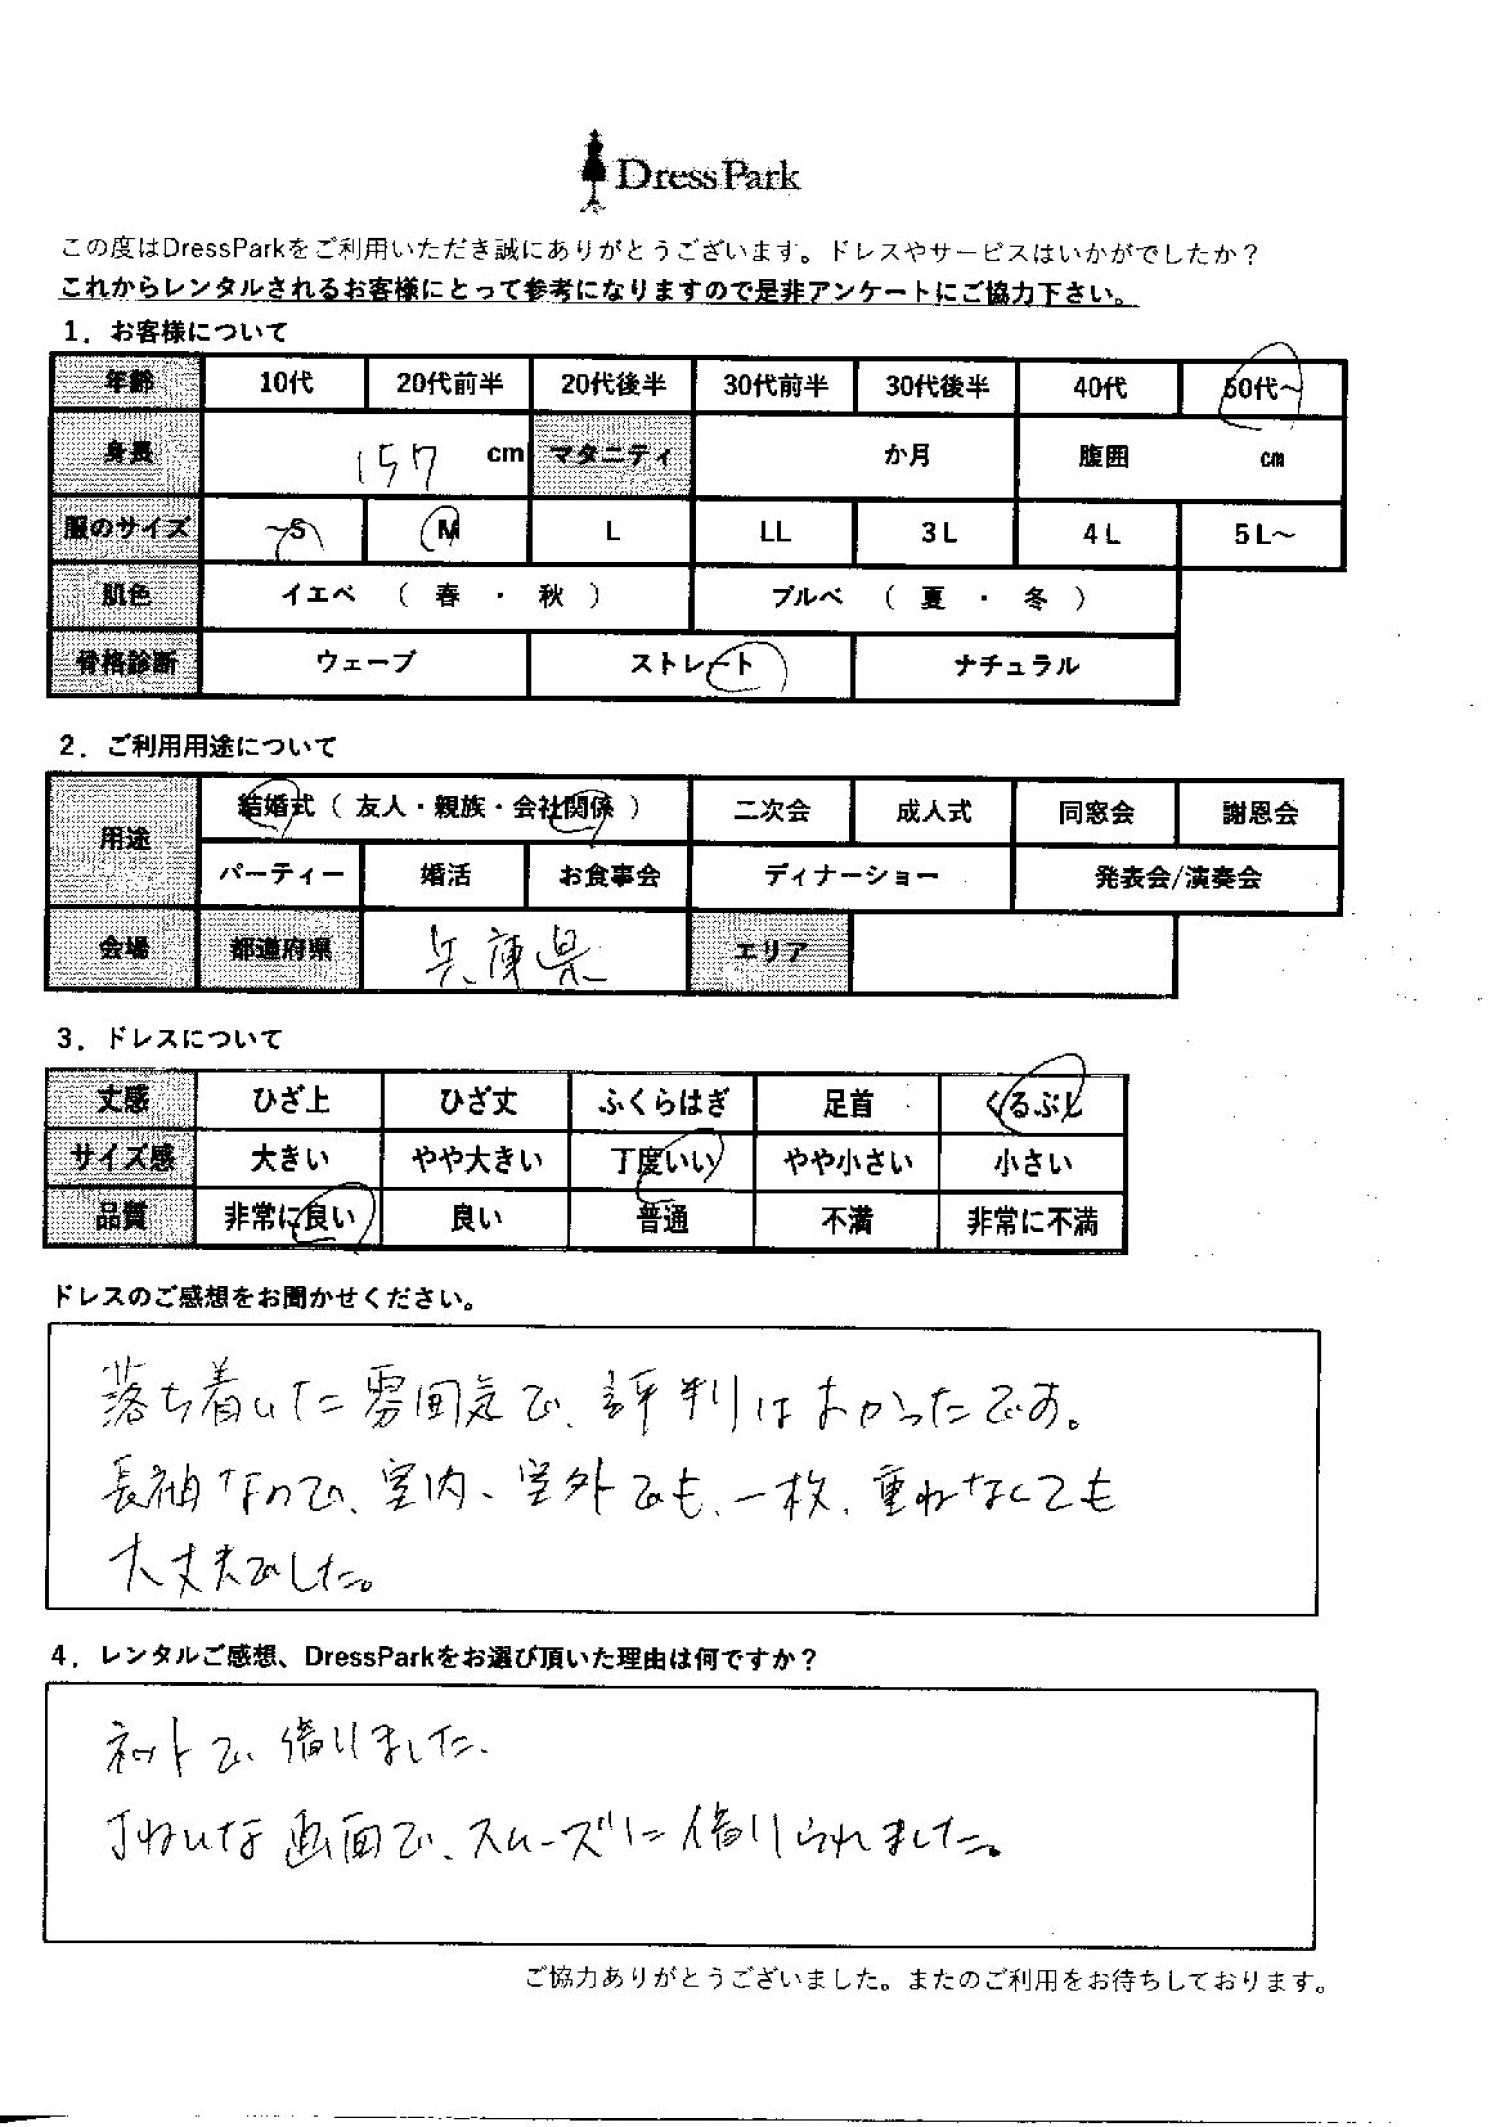 DressPark
この度はDressParkをご利用いただき誠にありがとうございます。ドレスやサービスはいかがでしたか？
これからレンタルされるお客様にとって参考になりますので是非アンケートにご協力下さい。
1．お客様について
年齢 10代 20代前半 20代後半 30代前半 30代後半 40代 50代～
身長 157 cm マタニティ か月 腹囲 cm
服のサイズ ～S M L LL 3L 4L 5L～
肌色 イエベ （ 春 ・ 秋 ） ブルべ （ 夏 ・ 冬 ）
骨格診断 ウェーブ ストレート ナチュラル
2．ご利用用途について
用途 結婚式（ 友人・親族・会社関係 ） 二次会 成人式 同窓会 謝恩会
パーティー 婚活 お食事会 ディナーショー 発表会/演奏会
会場 都道府県 兵庫県 エリア
3．ドレスについて
丈感 ひざ上 ひざ丈 ふくらはぎ 足首 くるぶし
サイズ感 大きい やや大きい 丁度いい やや小さい 小さい
品質 非常に良い 良い 普通 不満 非常に不満
ドレスのご感想をお聞かせください。
落ち着いた雰囲気で、評判はよかったです。
長袖なので、室内、室外でも、一枚、重ねなくても
大丈夫でした。
4．レンタルご感想、DressParkをお選び頂いた理由は何ですか？
ネットで、借りました、
丁ねいな画面で、スムーズに借りられました。
ご協力ありがとうございました。またのご利用をお待ちしております。